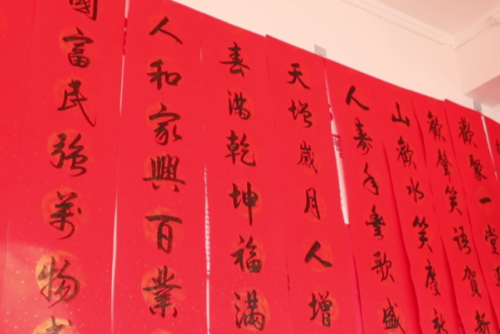 歡聚一堂
歡聲笑語賀新
山歡水笑度新
人壽年豐歌盛
天增歲月人增
春滿乾坤福滿
人和家興百業
國富民強萬物